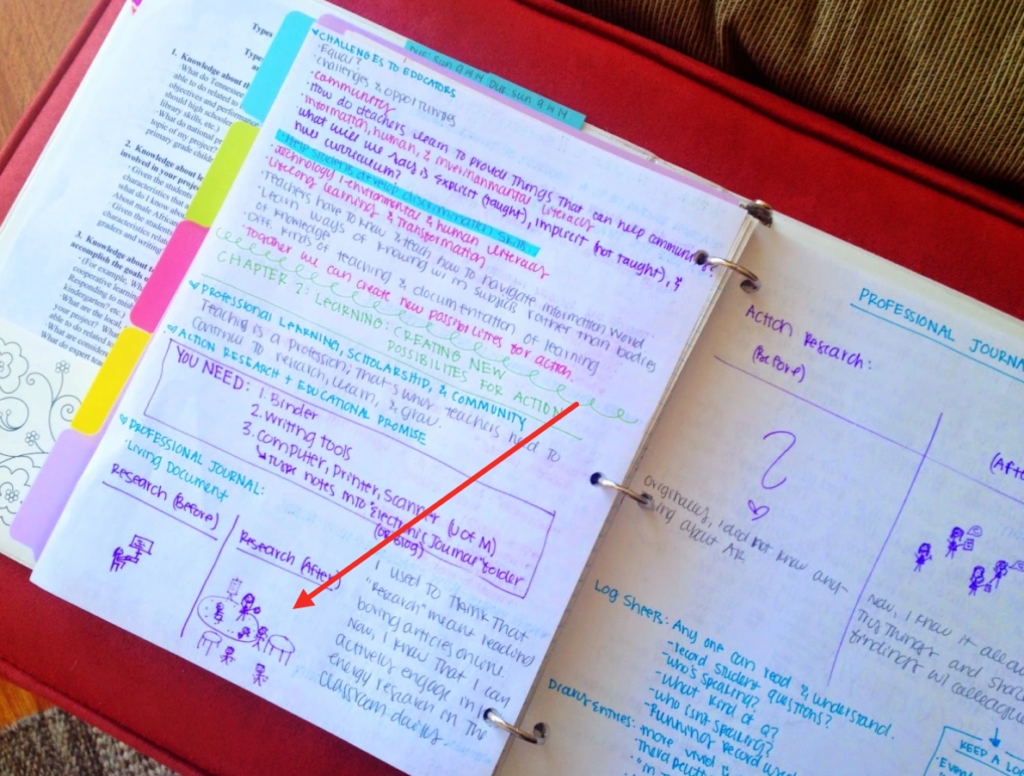 Types
Type
1. Knowledge about the
· What do Tennessee
able to do related to
objectives and performance
should high schoolers
library skills, etc.)
· What do national
topic of my project
primary grade children
2. Knowledge about
involved in your project
· Given the students
characteristics that
what do I know about
About male African
· Given the students
characteristics
graders and writing
3. Knowledge about
accomplish the goals
· (For example, Wh
cooperative learning
Responding to
kindergarten? etc.)
· What are the local,
your project?
able to do related to
· What are
· What do expert
CHALLENGES TO EDUCATORS
· Equal?
· challenges & opportunities
· community
· How do teachers learn to provide things that can help community?
· information, human, & environmental literacy
what will we say is explicit (taught), implicit (not taught), &
null curriculum?
· Help students develop discrimination skills
· Technology / environmental & human literacy
· Lifelong learning & transformation
· Teachers have to know & teach how to navigate information world
· Learn ways of knowing w/in subjects rather than bodies
of knowledge
· Diff. kinds of teaching & documentation of learning
· Together we can create new possibilities for action
CHAPTER 2: LEARNING: CREATING NEW
POSSIBILITES FOR ACTION
PROFESSIONAL LEARNING, SCHOLARSHIP, & COMMUNITY
Teaching is a profession; that's why teachers need to
continue to research, learn, & grow.
ACTION RESEARCH + EDUCATIONAL PROMISE
YOU NEED: 1. Binder
2. writing tools
3. computer, printer, scanner (U of M)
↳ Type notes into "Electronic Journal" folder
(or blog)
PROFESSIONAL JOURNAL:
· Living Document
Research (Before)
Research (After)
I used to think that
"research" meant reading
boring articles online.
Now, I know that I can
actively engage in
energy research on the
classroom daily.
PROFESSIONAL JOURNA
Action Research:
(Before)
(Aft
?
Originally, I did not know any-
thing about AR.
Now, I know it
this things and shar
findings w/ colleagu
Log Sheets: Any one can read & understand.
- record student questions?
- who's speaking?
- what kind of Q?
- who isn't speaking?
- Running record
Diary Entries: more vivid &
Therapeutic
KEEP A LO